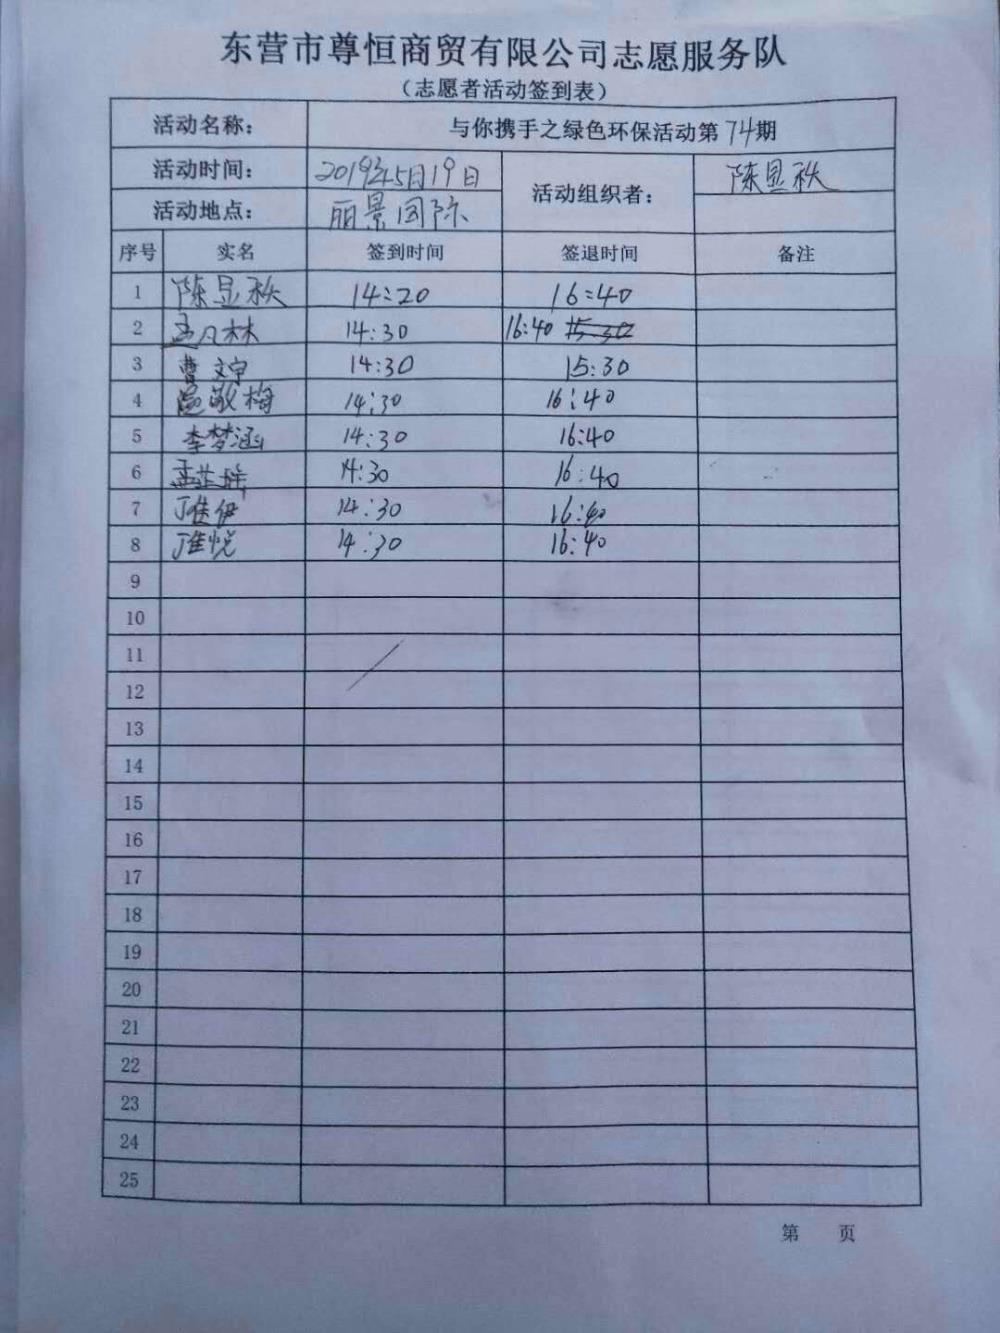 东营市尊恒商贸有限公司志愿服务队
(志愿者活动签到表)
活动名称: 与你携手之绿色环保活动第74期
活动时间: 2019年5月19日 活动组织者: 陈显秩
活动地点: 丽景国际
序号 实名 签到时间 签退时间 备注
1 陈显秩 14:20 16:40
2 14:30 16:40 15:30
3 曹文宇 14:30 15:30
4 敬梅 14:30 16:40
5 李梦涵 14:30 16:40
6 14:30 16:40
7 丁佳伊 14:30 16:40
8 丁佳悦 14:30 16:40
9
10
11
12
13
14
15
16
17
18
19
20
21
22
23
24
25
第 页